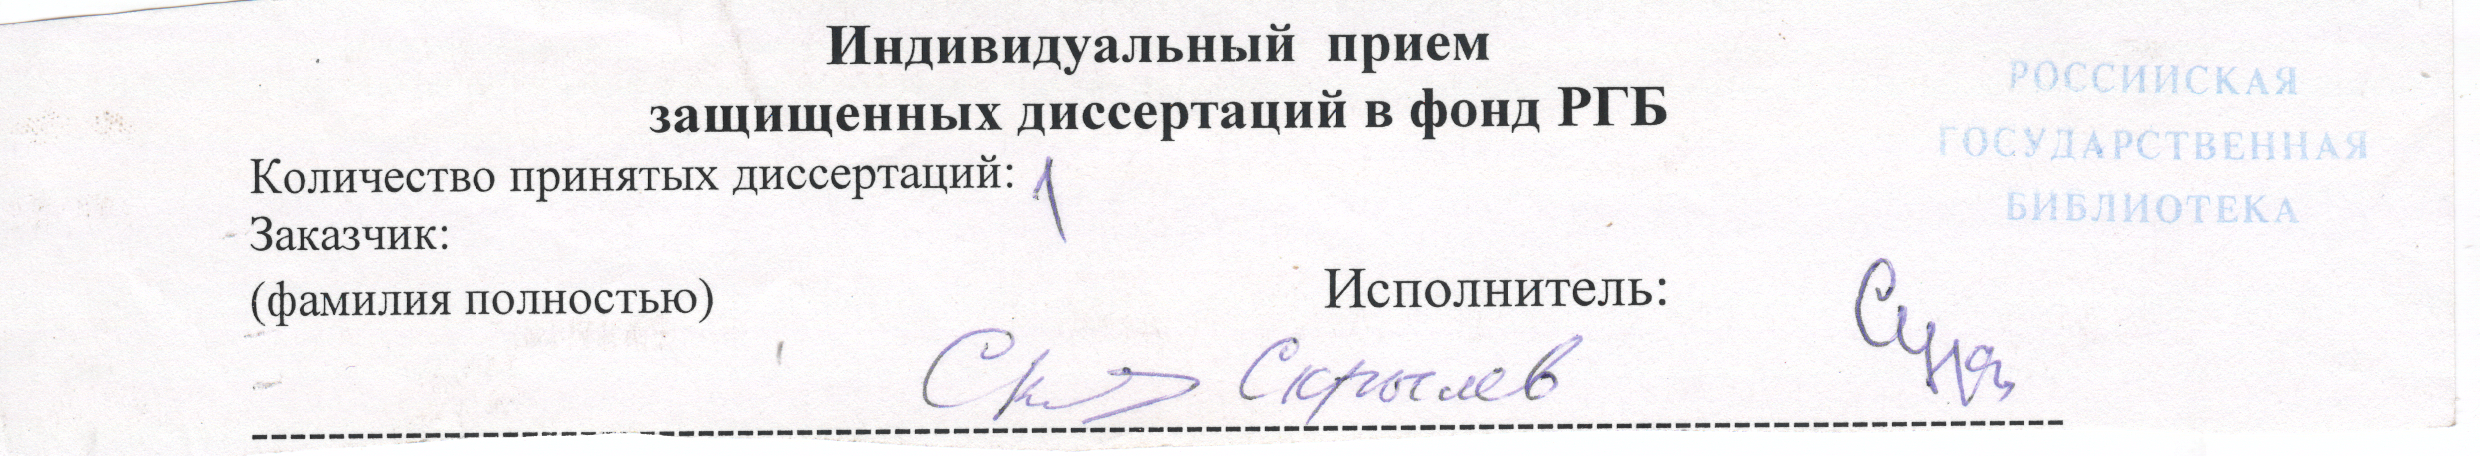 Индивидуальный прием
защищенных диссертаций в фонд РГБ
РОССИЙСКАЯ
ГОСУДАРСТВЕННАЯ
БИБЛИОТЕКА
Количество принятых диссертаций: 1
Заказчик:
(фамилия полностью)
Исполнитель:
Скрылев